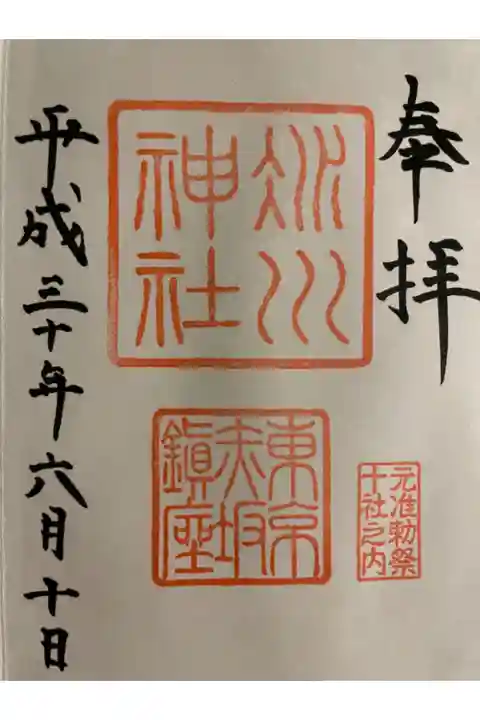 奉拝
氷川神社
東京赤坂鎮座
元准勅祭
十社之内
平成三十年六月十日